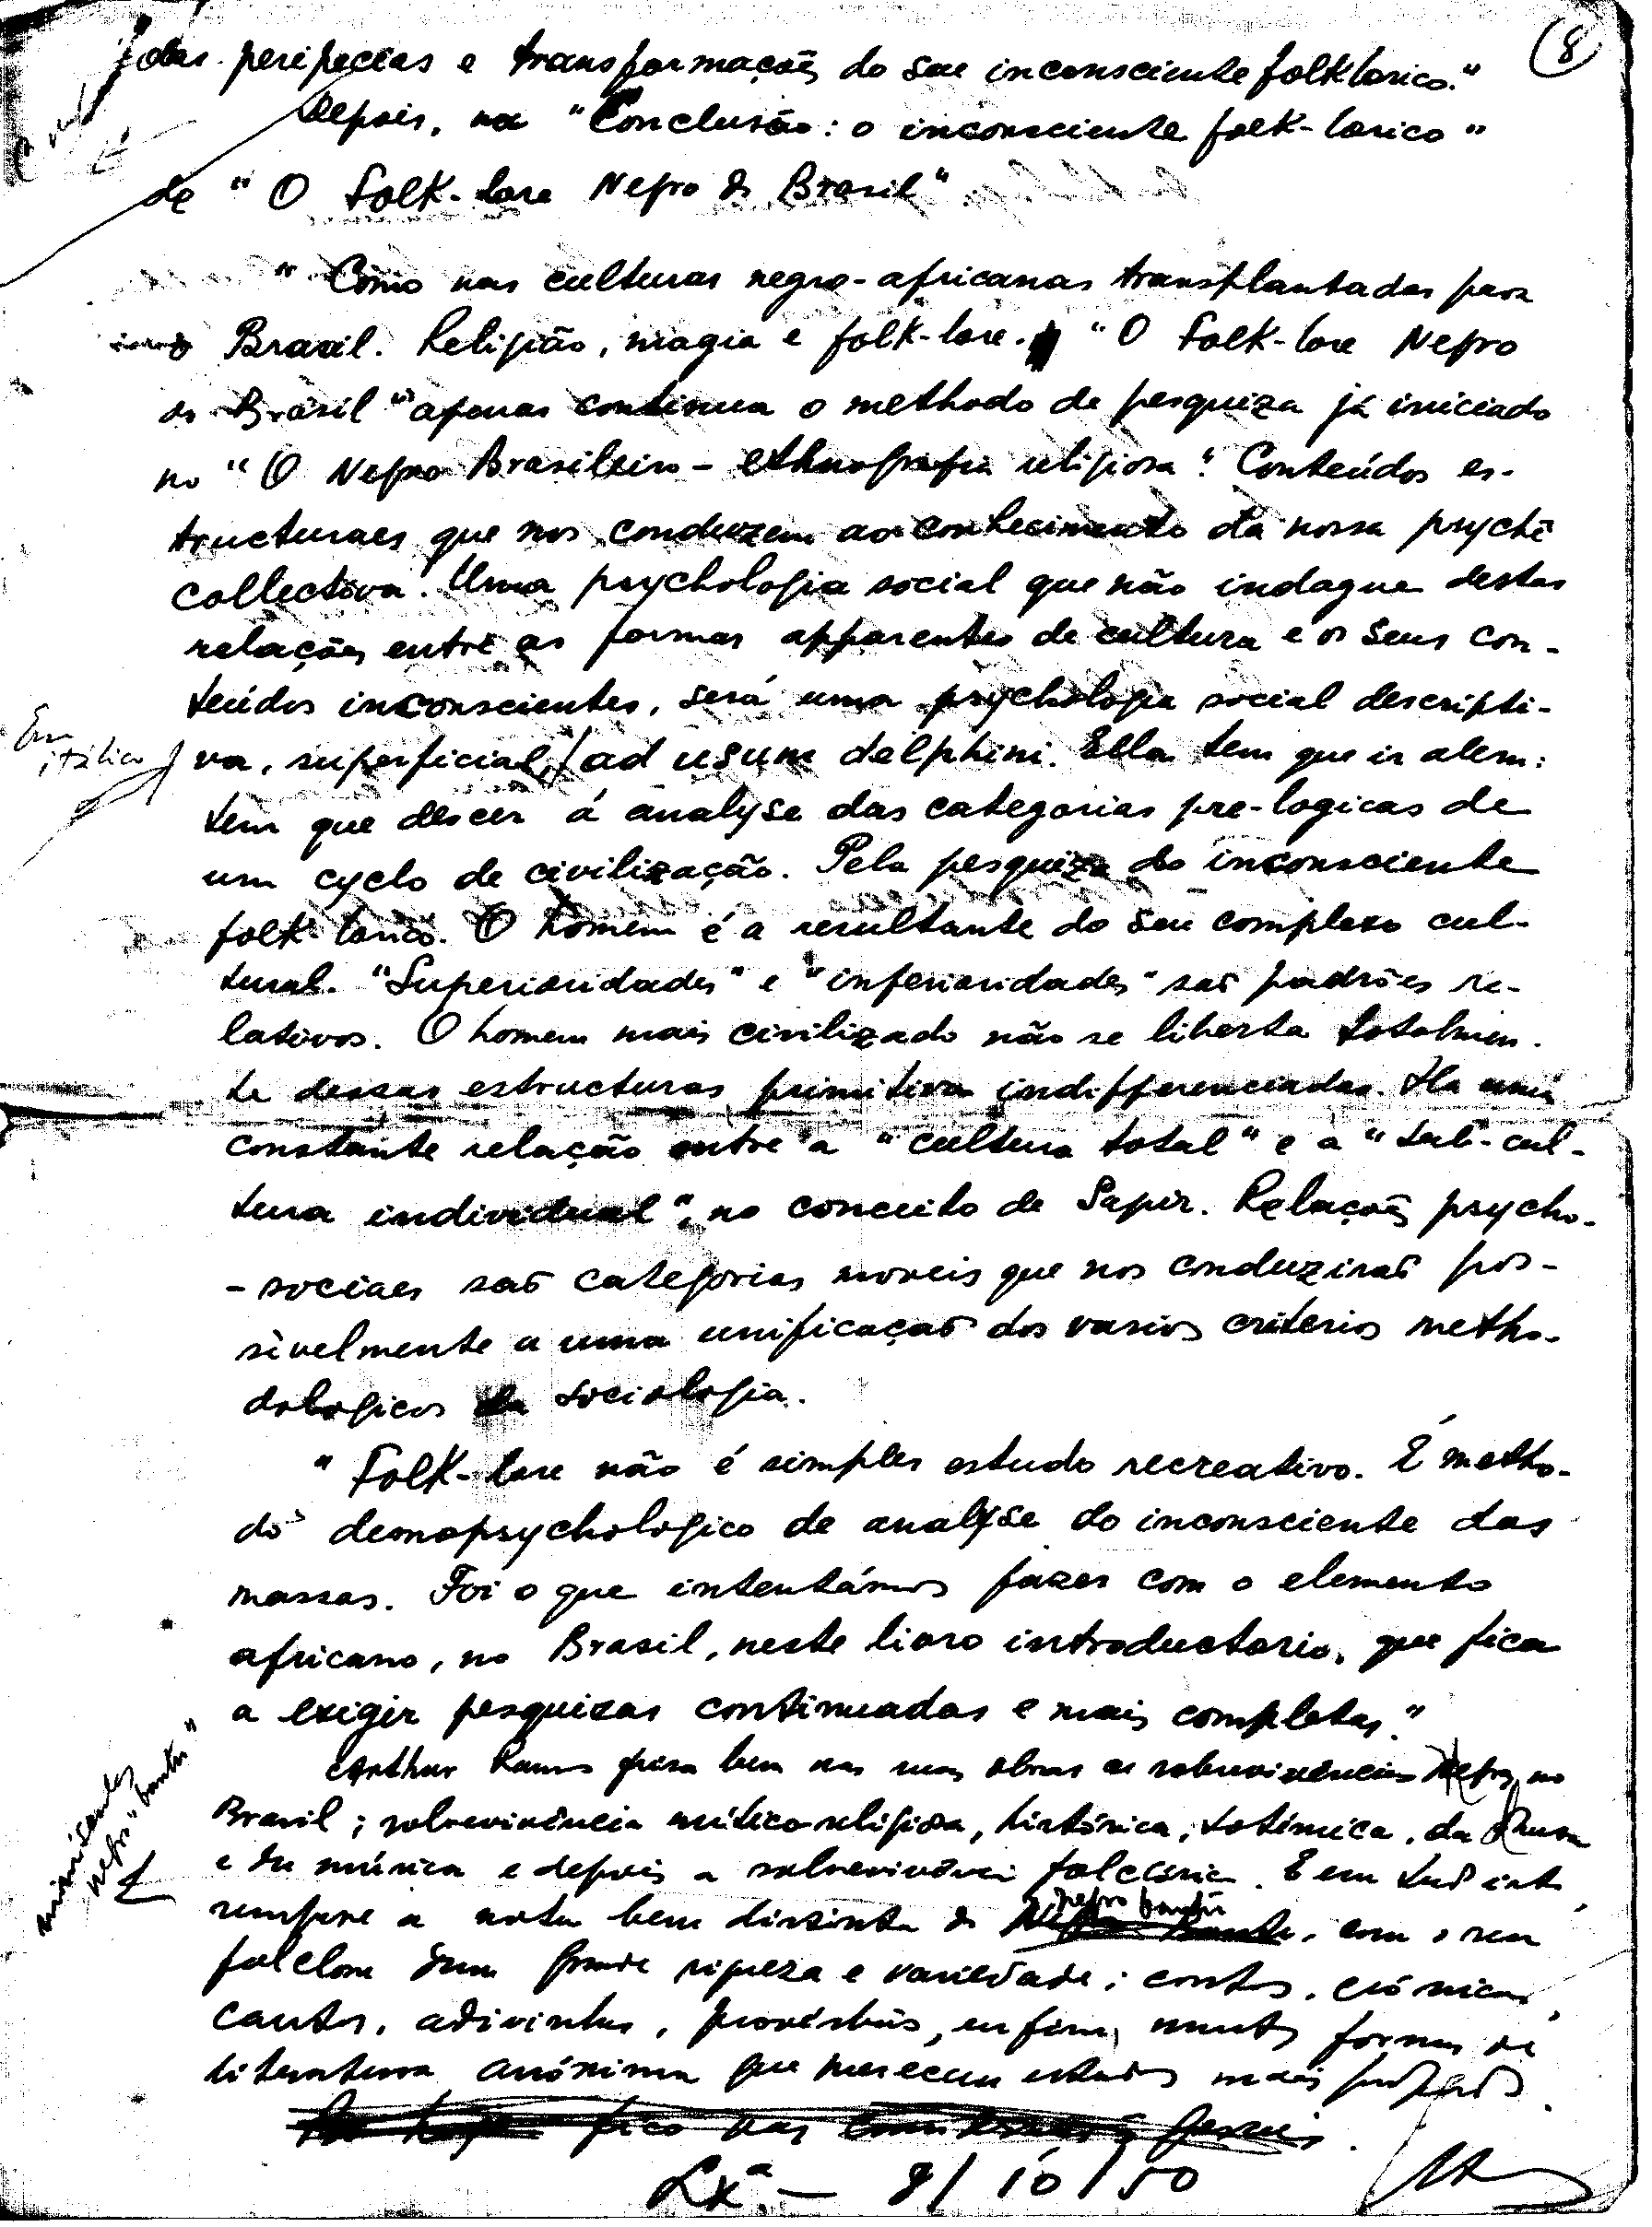 8
das peripecias e transformações do seu inconsciente folklorico."
Depois, na "Conclusão: o inconsciente folk-lorico"
de "O Folk-lore Negro do Brasil"
"Como nas culturas negro-africanas transplantadas para
o Brasil. Religião, magia e folk-lore. "O Folk-lore Negro
do Brasil" apenas continua o methodo de pesquiza já iniciado
no "O Negro Brasileiro - ethnografia religiosa". Conteúdos es-
tructuraes que nos conduzem ao conhecimento da nossa psychê
collectiva. Uma psychologia social que não indague destas
relações entre as formas apparentes de cultura e os seus con-
teúdos inconscientes, será uma psychologia social descripti-
Em
itálico
va, superficial, ad usum delphini. Ella tem que ir alem:
tem que descer á analyse das categorias pre-logicas de
um cyclo de civilização. Pela pesquiza do inconsciente
folk-lorico. O homem é a resultante do seu complexo cul-
tural. "Superioridades" e "inferioridades" são padrões re-
lativos. O homem mais civilizado não se liberta totalmen-
te dessas estructuras primitivas indifferenciadas. Ha uma
constante relação entre a "cultura total" e a "sub-cul-
tura individual", no conceito de Sapir. Relações psycho-
-sociaes são categorias moveis que nos conduzirão pos-
sivelmente a uma unificação dos varios criterios metho-
dologicos da sociologia.
"Folk-lore não é simples estudo recreativo. É metho-
do demopsychologico de analyse do inconsciente das
massas. Foi o que intentámos fazer com o elemento
africano, no Brasil, neste livro introductorio, que fica
a exigir pesquizas continuadas e mais completas."
Arthur Ramos frisa bem nas suas obras as sobrevivências negras no
Brasil; sobrevivência mítico-religiosa, histórica, totémica, da dança
e da música e depois a sobrevivência folclórica. E em tudo
minúsculas
negro "bantu"
rompe a nota bem distinta do negro bantu, com o seu
folclore dum grande riqueza e variedade; contos, crónicas,
cantos, adivinhas, provérbios, enfim, muitas formas de
literatura anónima que merecem estudos mais profundos.
fico nas considerações gerais.
Lxª - 8/10/50